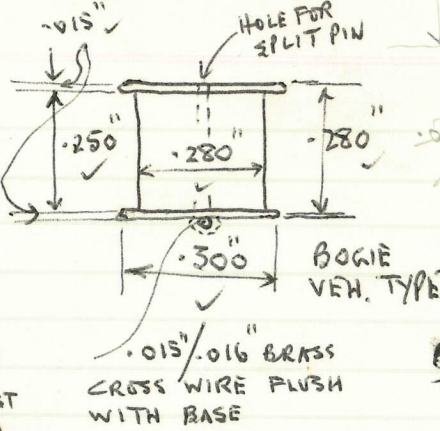 .015"
HOLE FOR
SPLIT PIN
.250"
.280"
.280"
.300"
BOGIE
VEH. TYPE
.015"/.016" BRASS
CROSS WIRE FLUSH
WITH BASE
ST